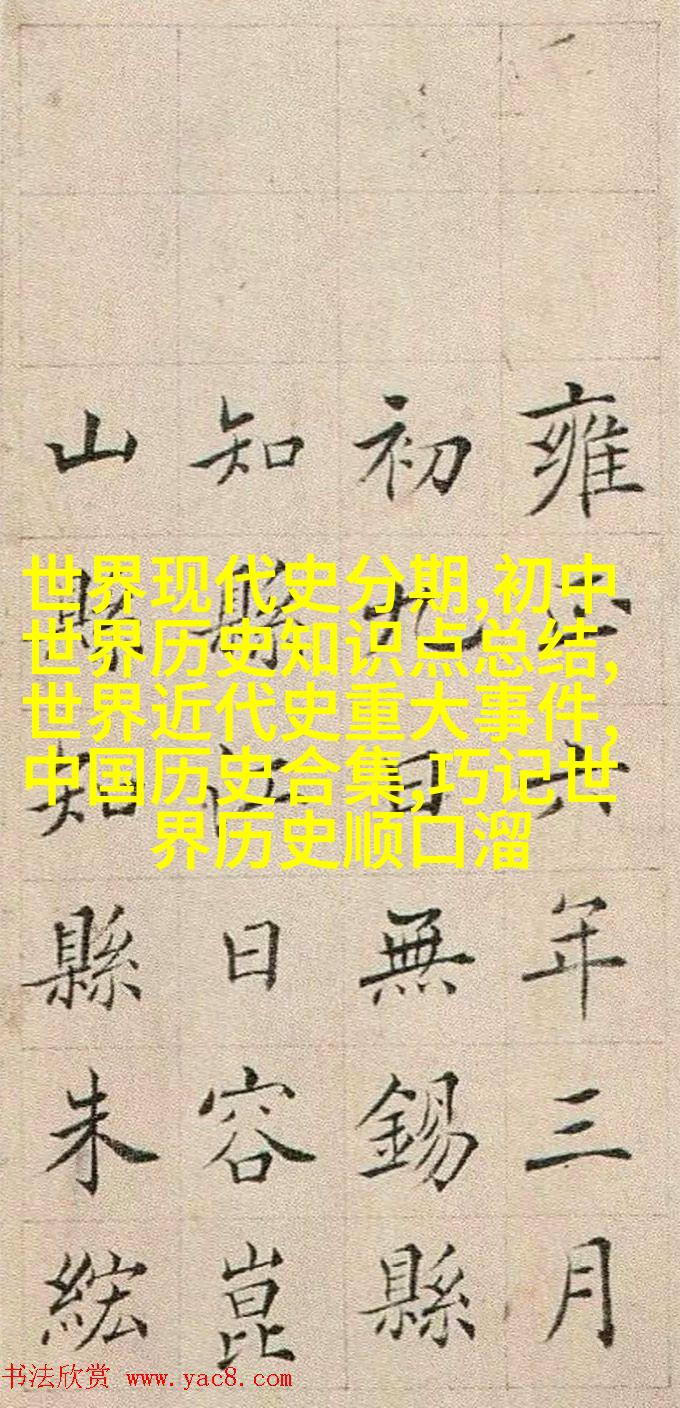 雍正六年三月
初九日無錫縣
知縣江日容崑
山縣知縣朱紘
世界现代史分期,初中
世界历史知识点总结,
世界近代史重大事件,
中国历史合集,巧记世
界历史顺口溜
书法欣赏 www.yac8.com